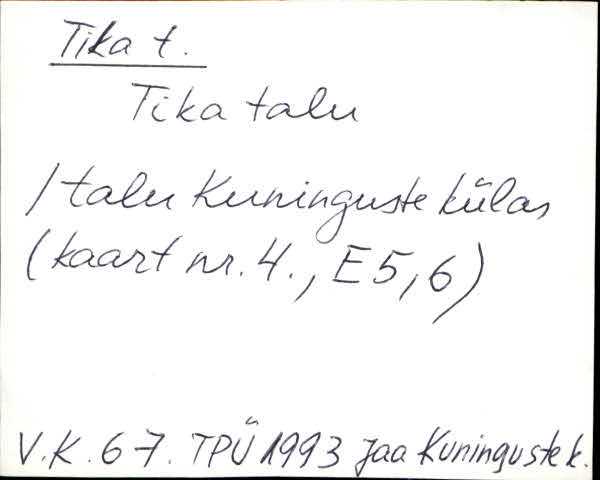 Tika t.
Tika talu
/ talu Kuninguste külas
(kaart nr. 4., E5,6)
V.K. 67. TPÜ 1993 Jaa Kuninguste k.